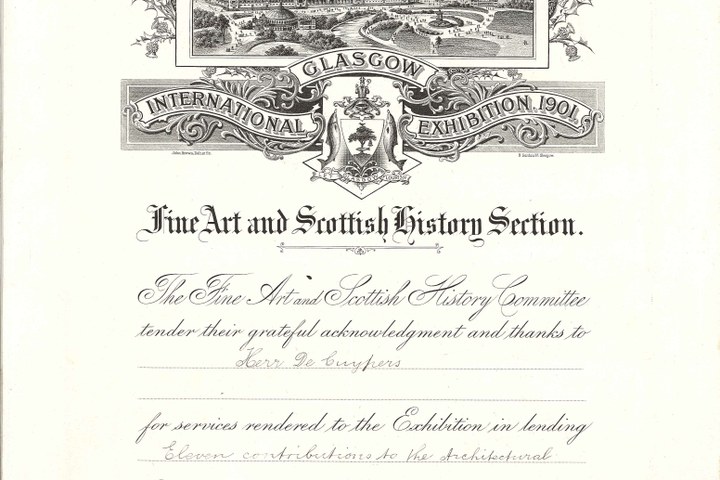 GLASGOW
INTERNATIONAL EXHIBITION, 1901.
Fine Art and Scottish History Section.
The Fine Art and Scottish History Committee
tender their grateful acknowledgment and thanks to
Herr De Cuypers
for services rendered to the Exhibition in lending
Eleven contributions to the Architectural